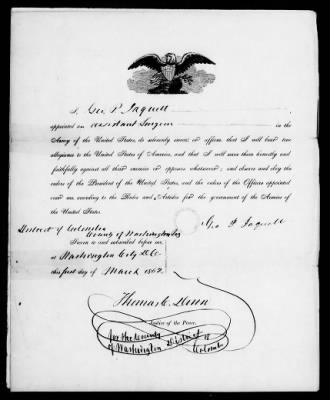 I, Geo. P. Jaquett
appointed an Assistant Surgeon in the
Army of the United States, do solemnly swear or affirm, that I will bear true
allegiance to the United States of America, and that I will serve them honestly and
faithfully against all their enemies or opposers whatsoever; and observe and obey
the orders of the President of the United States, and the orders of the Officers appointed
over me, according to the Rules and Articles for the government of the Armies of
the United States.
Geo P. Jaquett
District of Columbia
County of Washington
Sworn to and subscribed before me,
at Washington City D.C.
this first day of March 1862.
Thomas C. Donn
Justice of the Peace.
for the County
of Washington District of
Columbia